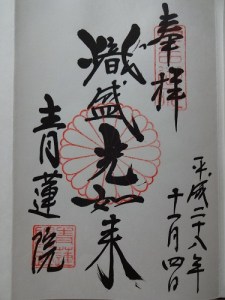 奉拝
熾盛光如来
青蓮院
平成二十八年
十一月四日